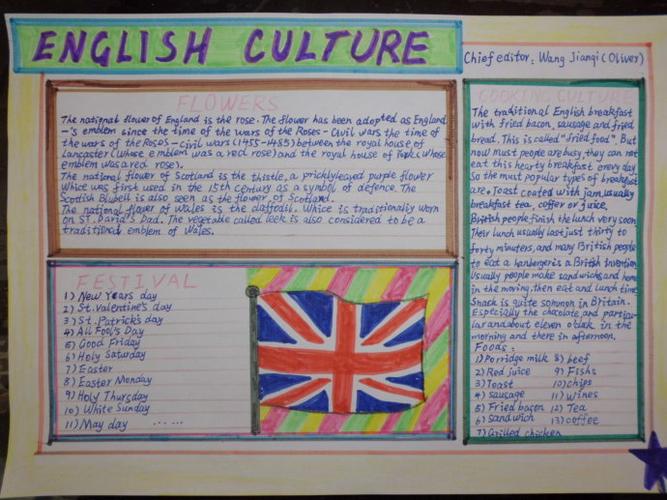 ENGLISH CULTURE
Chief editor: Wang Jianqi (Oliver)
FLOWERS
The national flower of England is the rose. The flower has been adopted as England
-'s emblem since the time of the wars of the Roses - Civil wars the time of
the wars of the Roses - civil wars (1455-1485) between the royal house of
Lancaster (whose emblem was a red rose) and the royal house of York (whose
emblem was a red rose).
The national flower of Scotland is the thistle, a pricklyleaved purple flower
Which was first used in the 15th century as a symbol of defence. The
Scottish Blubell is also seen as the flower of Scotland.
The national flower of Wales is the daffodil. Whice is traditionally worn
on ST. David's Dad. The vegetable called leek is also considered to be a
traditional emblem of Wales.
FESTIVAL
1) New Years day
2) St. Valentine's day
3) St. Patrick's day
4) All Fool's Day
5) Good Friday
6) Holy Saturday
7) Easter
8) Easter Monday
9) Holy Thursday
10) White Sunday
11) May day ... ...
COOKING CULTURE
The traditional English breakfast
with fried bacon, sausage and fried
bread. This is called "fried food". But
now must people are busy, they can not
eat this hearty breakfast every day
So the must popular types of breakfast
are: Toast coated with jam, usually
breakfast tea, coffer or juice.
British people finish the lunch very soon
Their lunch usually last just thirty to
forty minuters, and many British people
to eat a hanberger is a British invention
Usually people make sandwichs and
in the moring, then eat and lunch time
Snack is quite sommon in Britain.
Esptcially the chocolate and particu-
lar and about eleven o'clak in the
morning and there in afternoon.
Foods:
1) Porridge milk 8) beef
2) Red juice 9) Fishs
3) Toast 10) chips
4) sausage 11) Wines
5) Fried bacon 12) Tea
6) sandwich 13) coffee
7) Grilled chicken